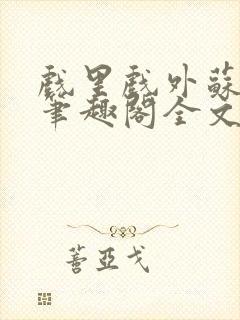 戲里戲外蘇
筆趣閣全文
蓍亞戈